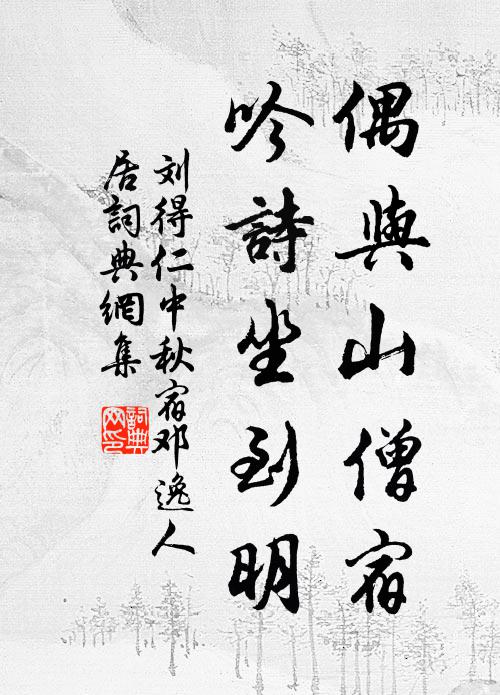 偶與山僧宿
吟詩坐到明
刘得仁中秋宿邓逸人
居詞典網集
詞典
网印